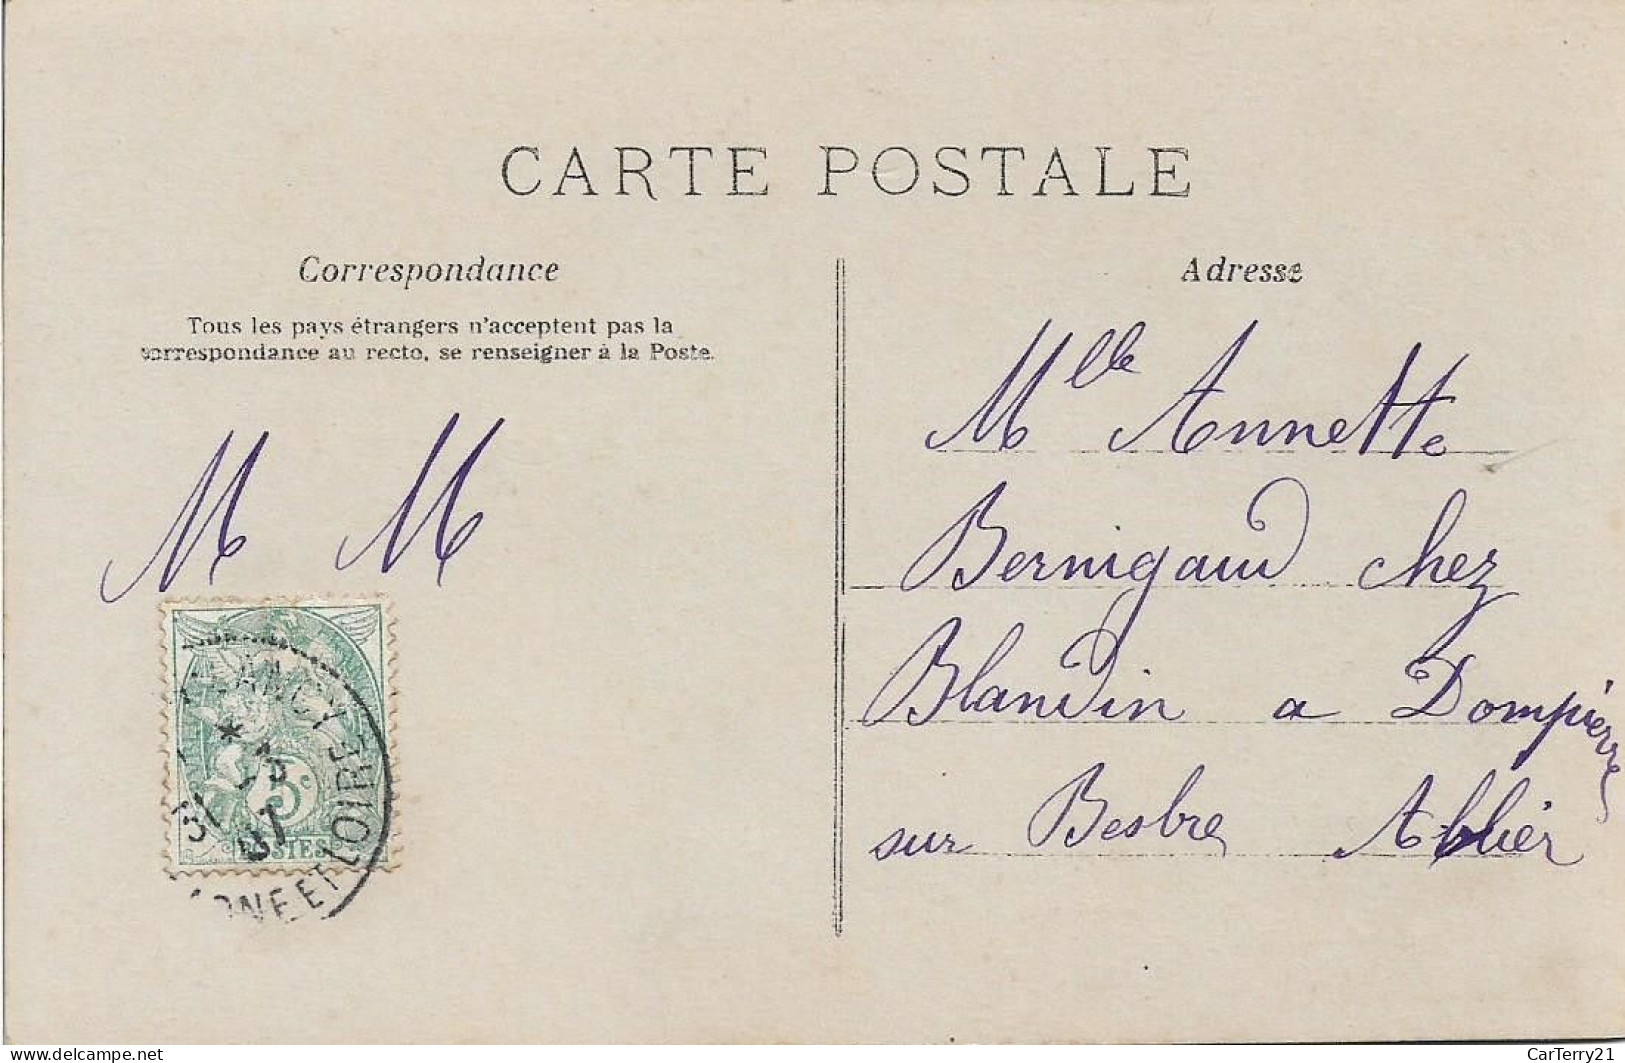 CARTE POSTALE
Correspondance
Tous les pays étrangers n'acceptent pas la
correspondance au recto, se renseigner à la Poste.
M M
Adresse
Mlle Annette
Bernigaud chez
Blandin a Dompierre
sur Besbre Allier
LANCY
31
07
ONE ET LOIRE
5c
POSTES
www.delcampe.net
CarTerry21